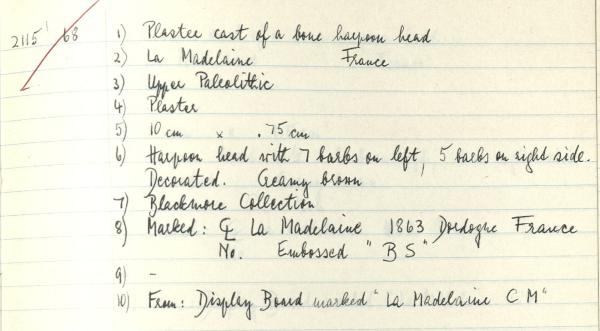 2115' 68 1) Plaster cast of a bone harpoon head
2) La Madelaine France
3) Upper Paleolithic
4) Plaster
5) 10 cm x .75 cm
6) Harpoon head with 7 barbs on left, 5 barbs on right side.
Decorated. Creamy brown
7) Blackmore Collection
8) Marked: La Madelaine 1863 Dordogne France
No. Embossed "BS"
9) -
10) From: Display Board marked "La Madelaine C M"